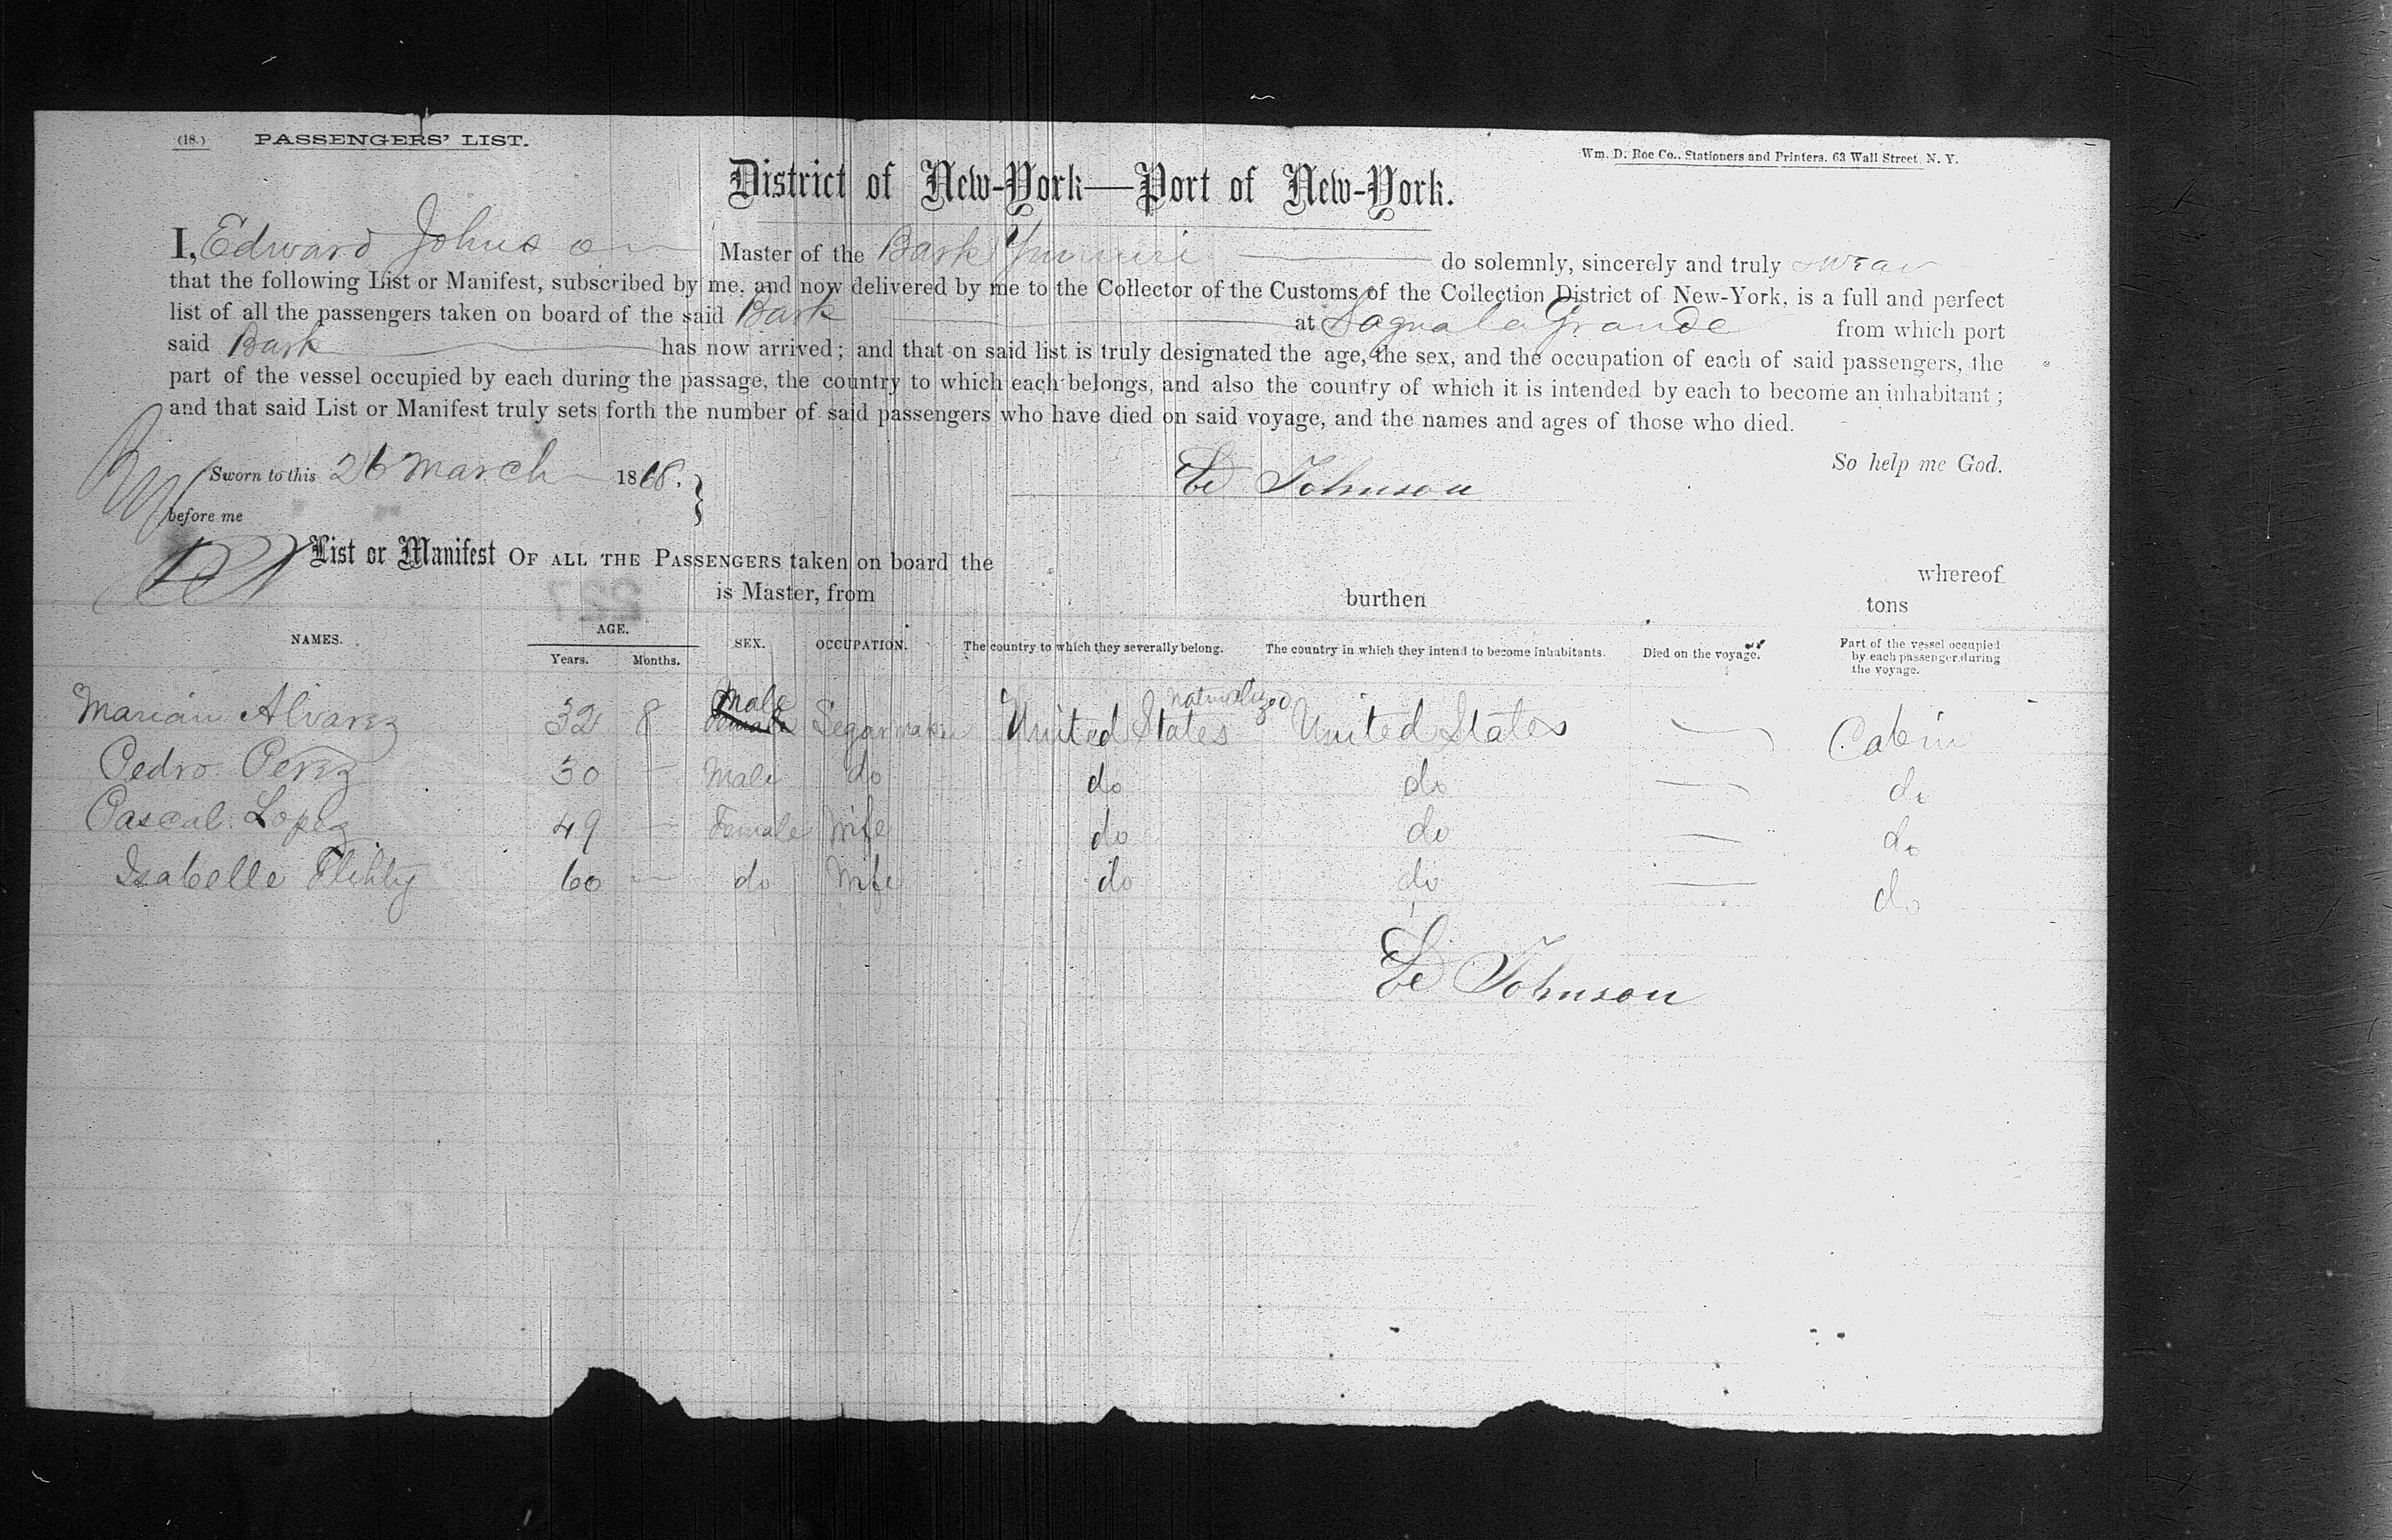 (18.) PASSENGERS' LIST.
Wm. D. Roe Co., Stationers and Printers, 63 Wall Street, N. Y.
District of New-York—Port of New-York.
I, Edward Johnson Master of the Bark Yumuri do solemnly, sincerely and truly swear
that the following List or Manifest, subscribed by me, and now delivered by me to the Collector of the Customs of the Collection District of New-York, is a full and perfect
list of all the passengers taken on board of the said Bark at Sagua la Grande from which port
said Bark has now arrived; and that on said list is truly designated the age, the sex, and the occupation of each of said passengers, the
part of the vessel occupied by each during the passage, the country to which each belongs, and also the country of which it is intended by each to become an inhabitant;
and that said List or Manifest truly sets forth the number of said passengers who have died on said voyage, and the names and ages of those who died.
So help me God.
Sworn to this 26 March 1868.
Ed Johnson
before me
List or Manifest OF ALL THE PASSENGERS taken on board the whereof
is Master, from burthen tons
227
NAMES. AGE. Years. Months. SEX. OCCUPATION. The country to which they severally belong. The country in which they intend to become inhabitants. Died on the voyage. Part of the vessel occupied by each passenger during the voyage.
Marian Alvarez 32 8 Male Female Segar maker United States naturalized United States Cabin
Pedro Perez 30 — Male do do do — do
Pascal Lopez 49 — Female Wife do do — do
Isabelle 60 — do Wife do do — do
Ed Johnson